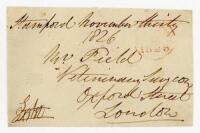 Stamford November thirty
1826
Mr Field
Veterinary Surgeon
Oxford Street
London